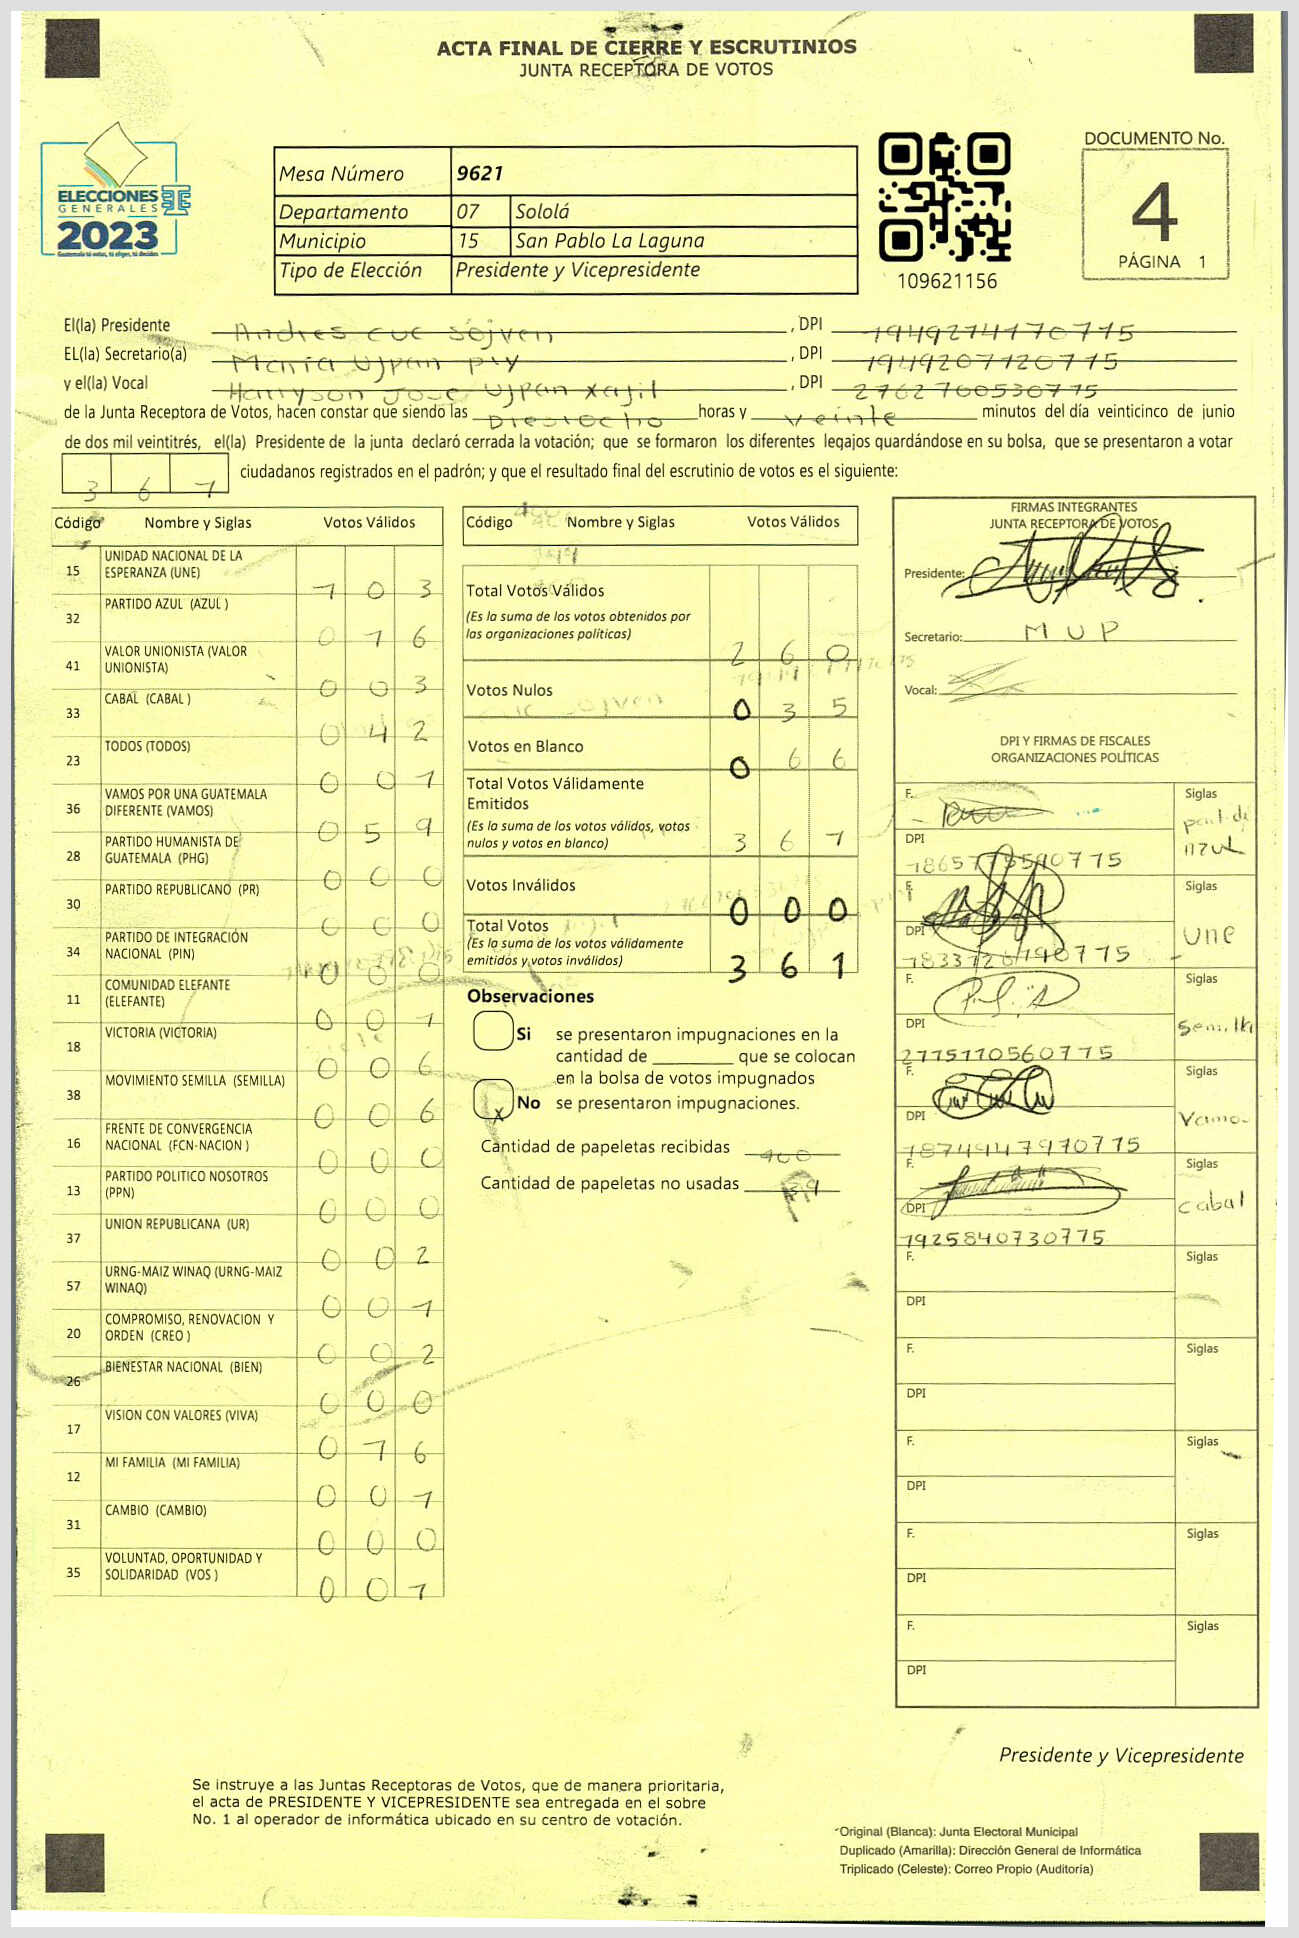 ACTA FINAL DE CIERRE Y ESCRUTINIOS
JUNTA RECEPTORA DE VOTOS
ELECCIONES
GENERALES
2023
Guatemala tú votas, tú eliges, tú decides
Mesa Número 9621
Departamento 07 Sololá
Municipio 15 San Pablo La Laguna
Tipo de Elección Presidente y Vicepresidente
109621156
DOCUMENTO No.
4
PÁGINA 1
El(la) Presidente Andres cuc sojven , DPI 1949274170715
EL(la) Secretario(a) Maria Ujpan piy , DPI 1949207120715
y el(la) Vocal Harryson Jose Ujpan xajil , DPI 2762760530715
de la Junta Receptora de Votos, hacen constar que siendo las Dieciocho horas y veinte minutos del día veinticinco de junio
de dos mil veintitrés, el(la) Presidente de la junta declaró cerrada la votación; que se formaron los diferentes legajos quardándose en su bolsa, que se presentaron a votar
3 6 1 ciudadanos registrados en el padrón; y que el resultado final del escrutinio de votos es el siguiente:
Código Nombre y Siglas Votos Válidos
15 UNIDAD NACIONAL DE LA ESPERANZA (UNE) 1 0 3
32 PARTIDO AZUL (AZUL ) 0 1 6
41 VALOR UNIONISTA (VALOR UNIONISTA) 0 0 3
33 CABAL (CABAL ) 0 4 2
23 TODOS (TODOS) 0 0 1
36 VAMOS POR UNA GUATEMALA DIFERENTE (VAMOS) 0 5 9
28 PARTIDO HUMANISTA DE GUATEMALA (PHG) 0 0 0
30 PARTIDO REPUBLICANO (PR) 0 0 0
34 PARTIDO DE INTEGRACIÓN NACIONAL (PIN) 0 0 0
11 COMUNIDAD ELEFANTE (ELEFANTE) 0 0 1
18 VICTORIA (VICTORIA) 0 0 6
38 MOVIMIENTO SEMILLA (SEMILLA) 0 0 6
16 FRENTE DE CONVERGENCIA NACIONAL (FCN-NACION ) 0 0 0
13 PARTIDO POLITICO NOSOTROS (PPN) 0 0 0
37 UNION REPUBLICANA (UR) 0 0 2
57 URNG-MAIZ WINAQ (URNG-MAIZ WINAQ) 0 0 1
20 COMPROMISO, RENOVACION Y ORDEN (CREO ) 0 0 2
26 BIENESTAR NACIONAL (BIEN) 0 0 0
17 VISION CON VALORES (VIVA) 0 1 6
12 MI FAMILIA (MI FAMILIA) 0 0 1
31 CAMBIO (CAMBIO) 0 0 0
35 VOLUNTAD, OPORTUNIDAD Y SOLIDARIDAD (VOS ) 0 0 1
Código Nombre y Siglas Votos Válidos
Total Votos Válidos 2 6 0
(Es la suma de los votos obtenidos por
las organizaciones políticas)
Votos Nulos 0 3 5
Votos en Blanco 0 6 6
Total Votos Válidamente
Emitidos
(Es la suma de los votos válidos, votos
nulos y votos en blanco) 3 6 1
Votos Inválidos 0 0 0
Total Votos
(Es la suma de los votos válidamente
emitidos y votos inválidos) 3 6 1
Observaciones
Si se presentaron impugnaciones en la
cantidad de ________ que se colocan
en la bolsa de votos impugnados
X No se presentaron impugnaciones.
Cantidad de papeletas recibidas 400
Cantidad de papeletas no usadas 39
FIRMAS INTEGRANTES
JUNTA RECEPTORA DE VOTOS
Presidente:
Secretario: M U P
Vocal:
DPI Y FIRMAS DE FISCALES
ORGANIZACIONES POLÍTICAS
F. Siglas
DPI
F. Siglas Une
DPI
F. Siglas Semilla
DPI 2715110560715
F. Siglas Vamos
DPI 1874947970715
F. Siglas cabal
DPI 1925840730715
F. Siglas
DPI
F. Siglas
DPI
F. Siglas
DPI
F. Siglas
DPI
F. Siglas
DPI
Presidente y Vicepresidente
Se instruye a las Juntas Receptoras de Votos, que de manera prioritaria,
el acta de PRESIDENTE Y VICEPRESIDENTE sea entregada en el sobre
No. 1 al operador de informática ubicado en su centro de votación.
Original (Blanca): Junta Electoral Municipal
Duplicado (Amarilla): Dirección General de Informática
Triplicado (Celeste): Correo Propio (Auditoría)